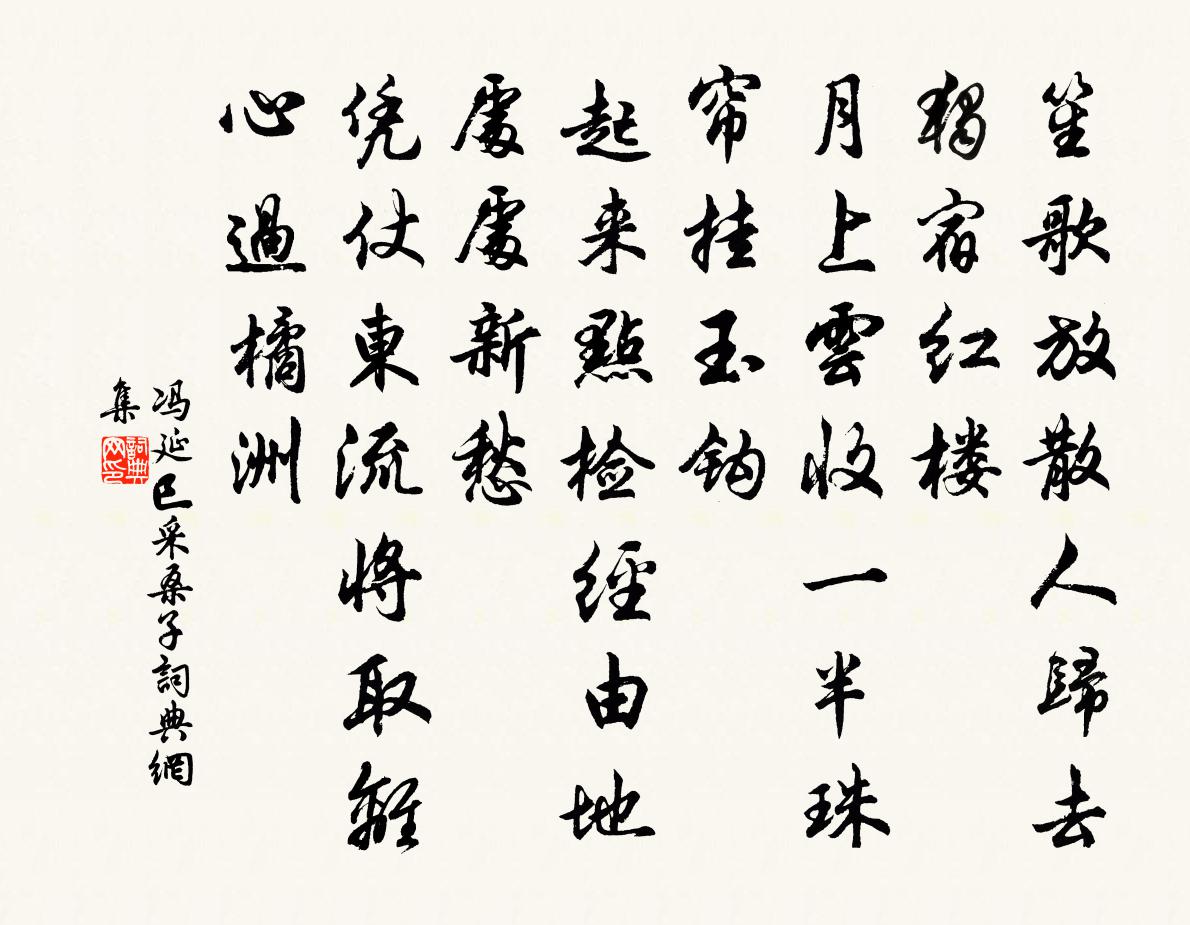 笙歌放散人歸去
獨宿红楼
月上雲收一半珠
帘挂玉钩
起来點检经由地
處處新愁
凭仗東流将取離
心過橘洲
冯延巳采桑子詞典網
集
詞典网印